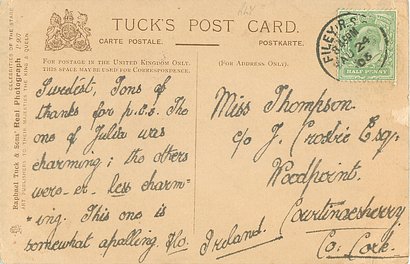 TUCK'S POST CARD.
CARTE POSTALE.
POSTKARTE.
FOR POSTAGE IN THE UNITED KINGDOM ONLY
THIS SPACE MAY BE USED FOR CORRESPONDENCE.
(FOR ADDRESS ONLY.)
CELEBRITIES OF THE STAGE
Raphael Tuck & Sons' Real Photograph
ART PUBLISHERS TO THEIR MAJESTIES THE KING & QUEEN
FILEY R.S.O.
24
HALF PENNY
Swedést, Tons of
thanks for p.c.s. The
one of Julia was
charming; the others
were-er-less charm-
=ing. This one is
somewhat apalling.
Miss Thompson.
c/o J. Crosbie Esq.
Woodpoint.
Courtmacsherry
Ireland. Co. Cork.